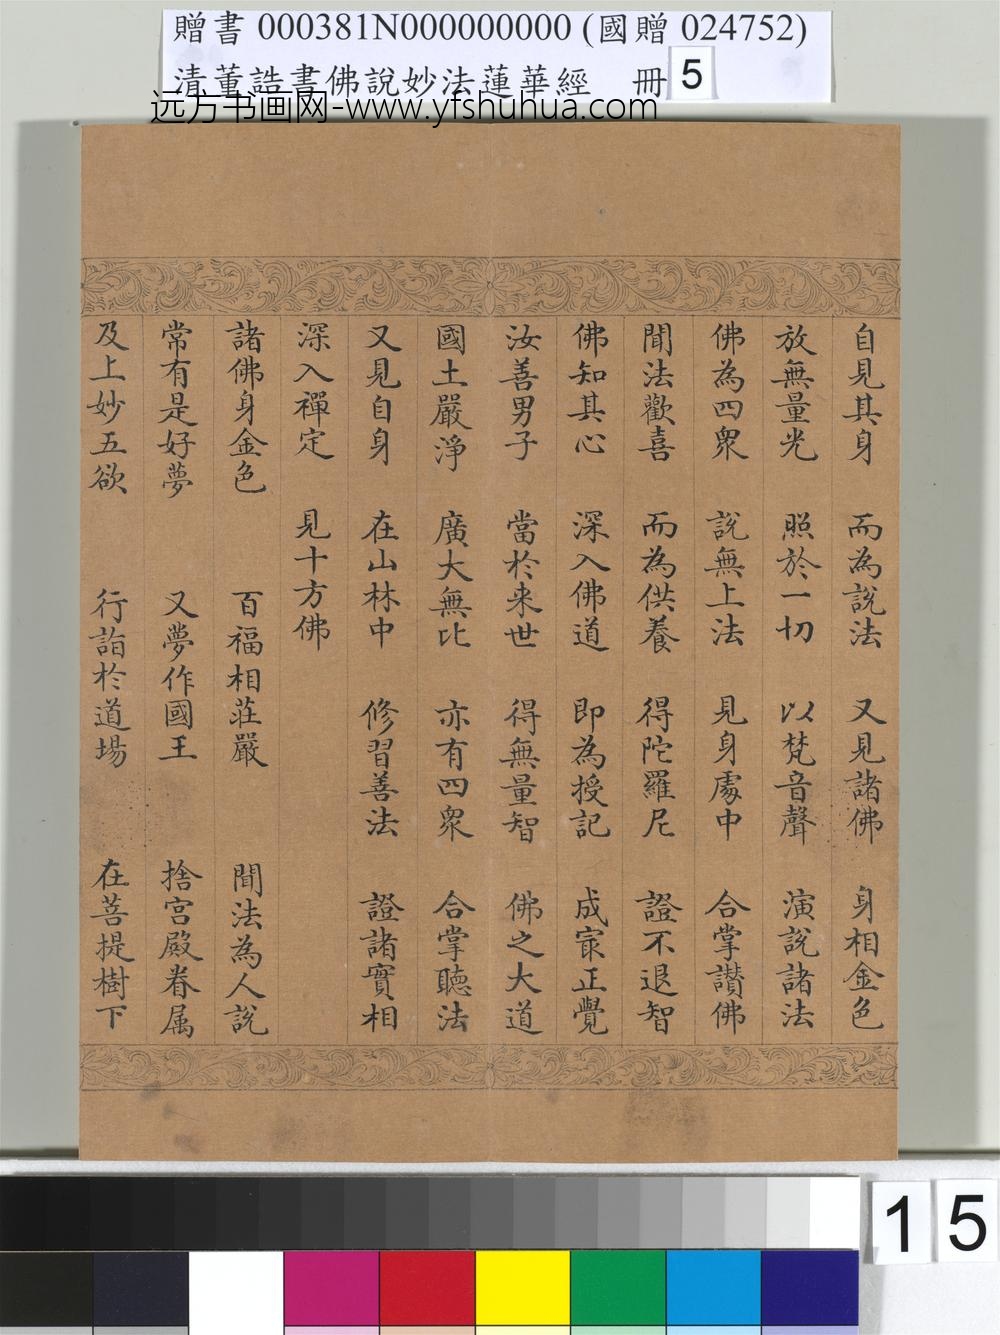 贈書 000381N000000000 (國贈 024752)
清董誥書佛說妙法蓮華經 冊 5
远方书画网-www.yfshuhua.com
自見其身 而為說法 又見諸佛 身相金色
放無量光 照於一切 以梵音聲 演說諸法
佛為四眾 說無上法 見身處中 合掌讚佛
聞法歡喜 而為供養 得陀羅尼 證不退智
佛知其心 深入佛道 即為授記 成冣正覺
汝善男子 當於来世 得無量智 佛之大道
國土嚴淨 廣大無比 亦有四眾 合掌聽法
又見自身 在山林中 修習善法 證諸實相
深入禪定 見十方佛
諸佛身金色 百福相莊嚴 聞法為人說
常有是好夢 又夢作國王 捨宮殿眷属
及上妙五欲 行詣於道場 在菩提樹下
15